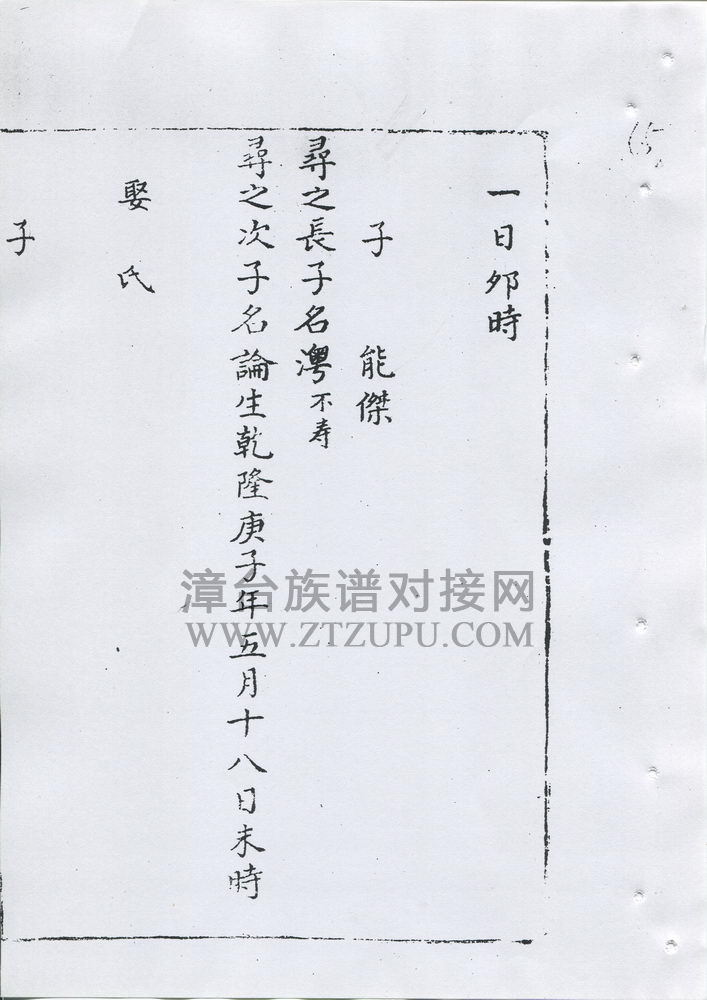 65
一日夘時
子 能傑
尋之長子名灣不寿
尋之次子名論生乾隆庚子年五月十八日未時
娶 氏
子
漳台族谱对接网
WWW.ZTZUPU.COM